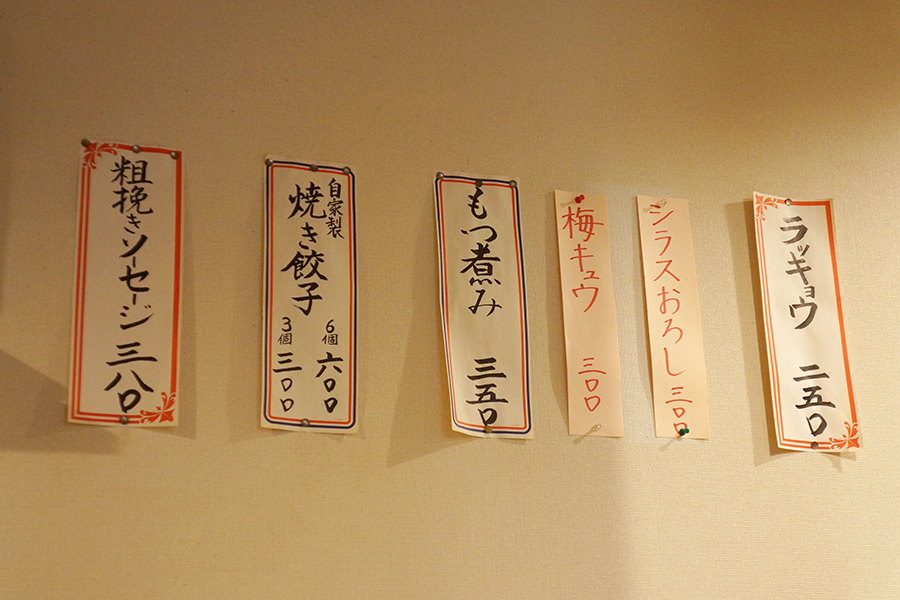 粗挽きソーセージ 三八〇
自家製
焼き餃子
6個 六〇〇
3個 三〇〇
もつ煮み 三五〇
梅キュウ 三〇〇
シラスおろし 三〇〇
ラッキョウ 二五〇